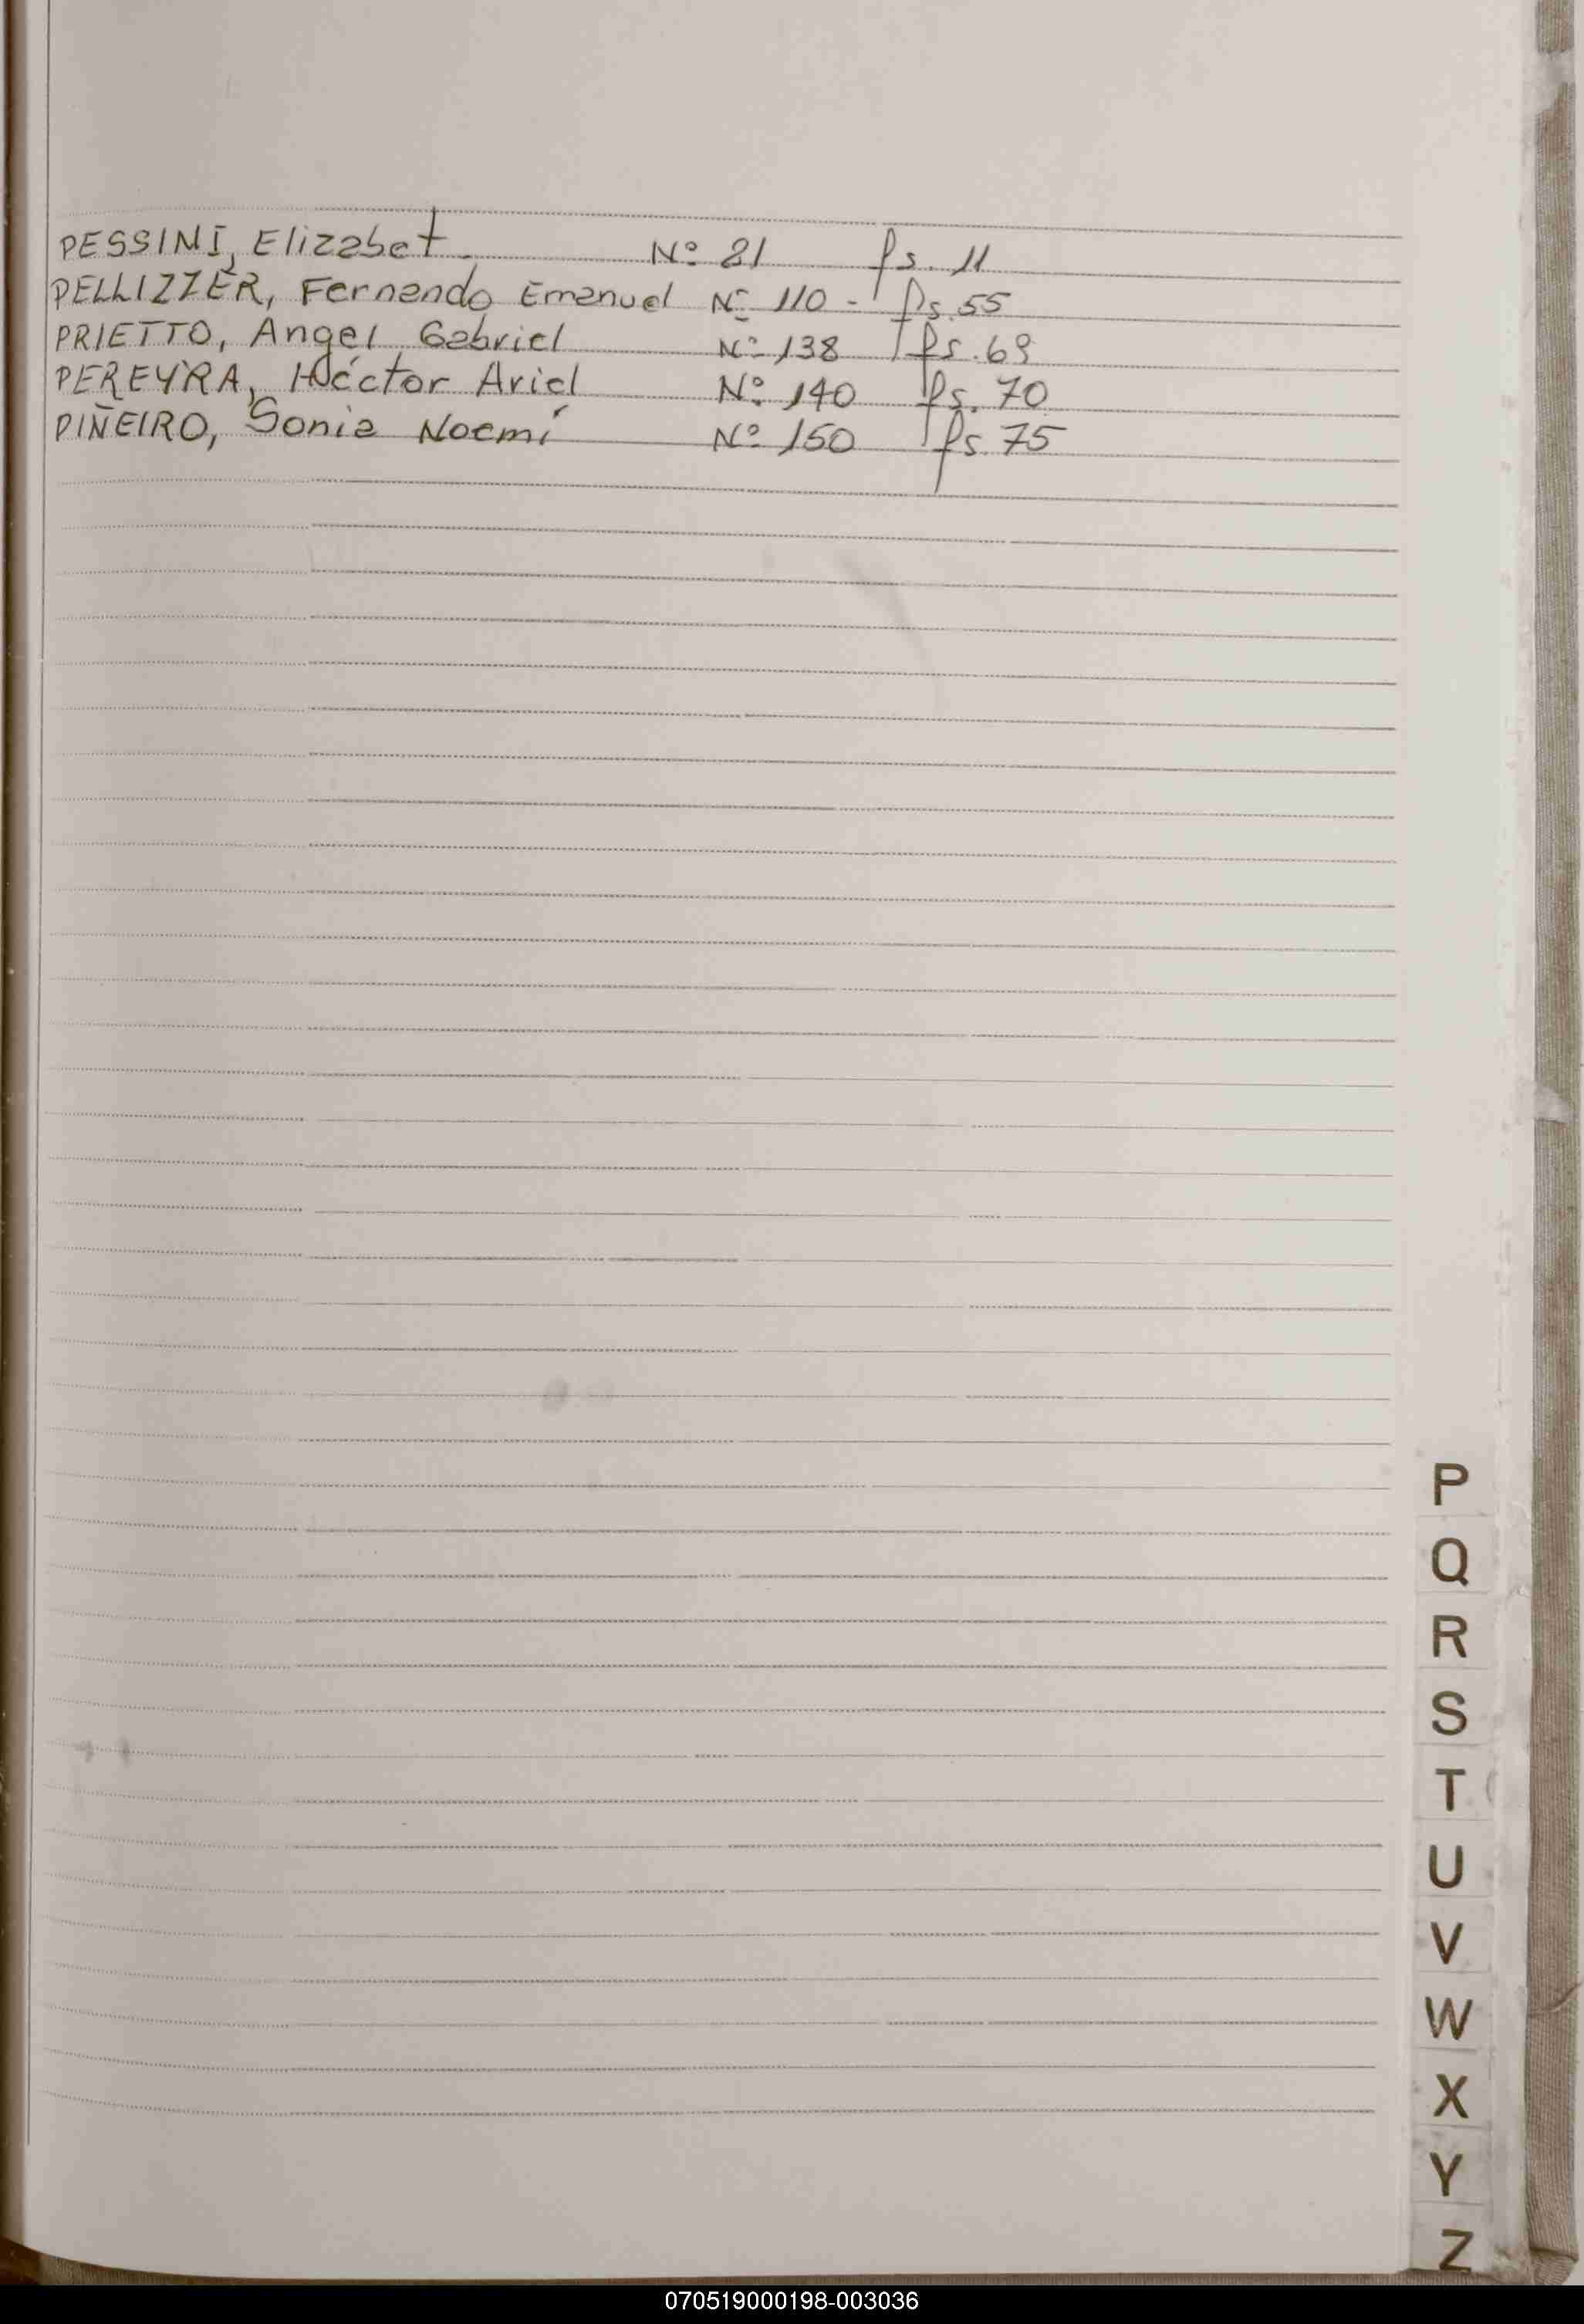 PESSINI, Elizabet. Nº 21 fs. 11
PELLIZZER, Fernando Emanuel Nº 110 - fs. 55
PRIETTO, Angel Gabriel Nº 138 fs. 69
PEREYRA, Héctor Ariel Nº 140 fs. 70
PIÑEIRO, Sonia Noemí Nº 150 fs. 75
P
Q
R
S
T
U
V
W
X
Y
Z
070519000198-003036